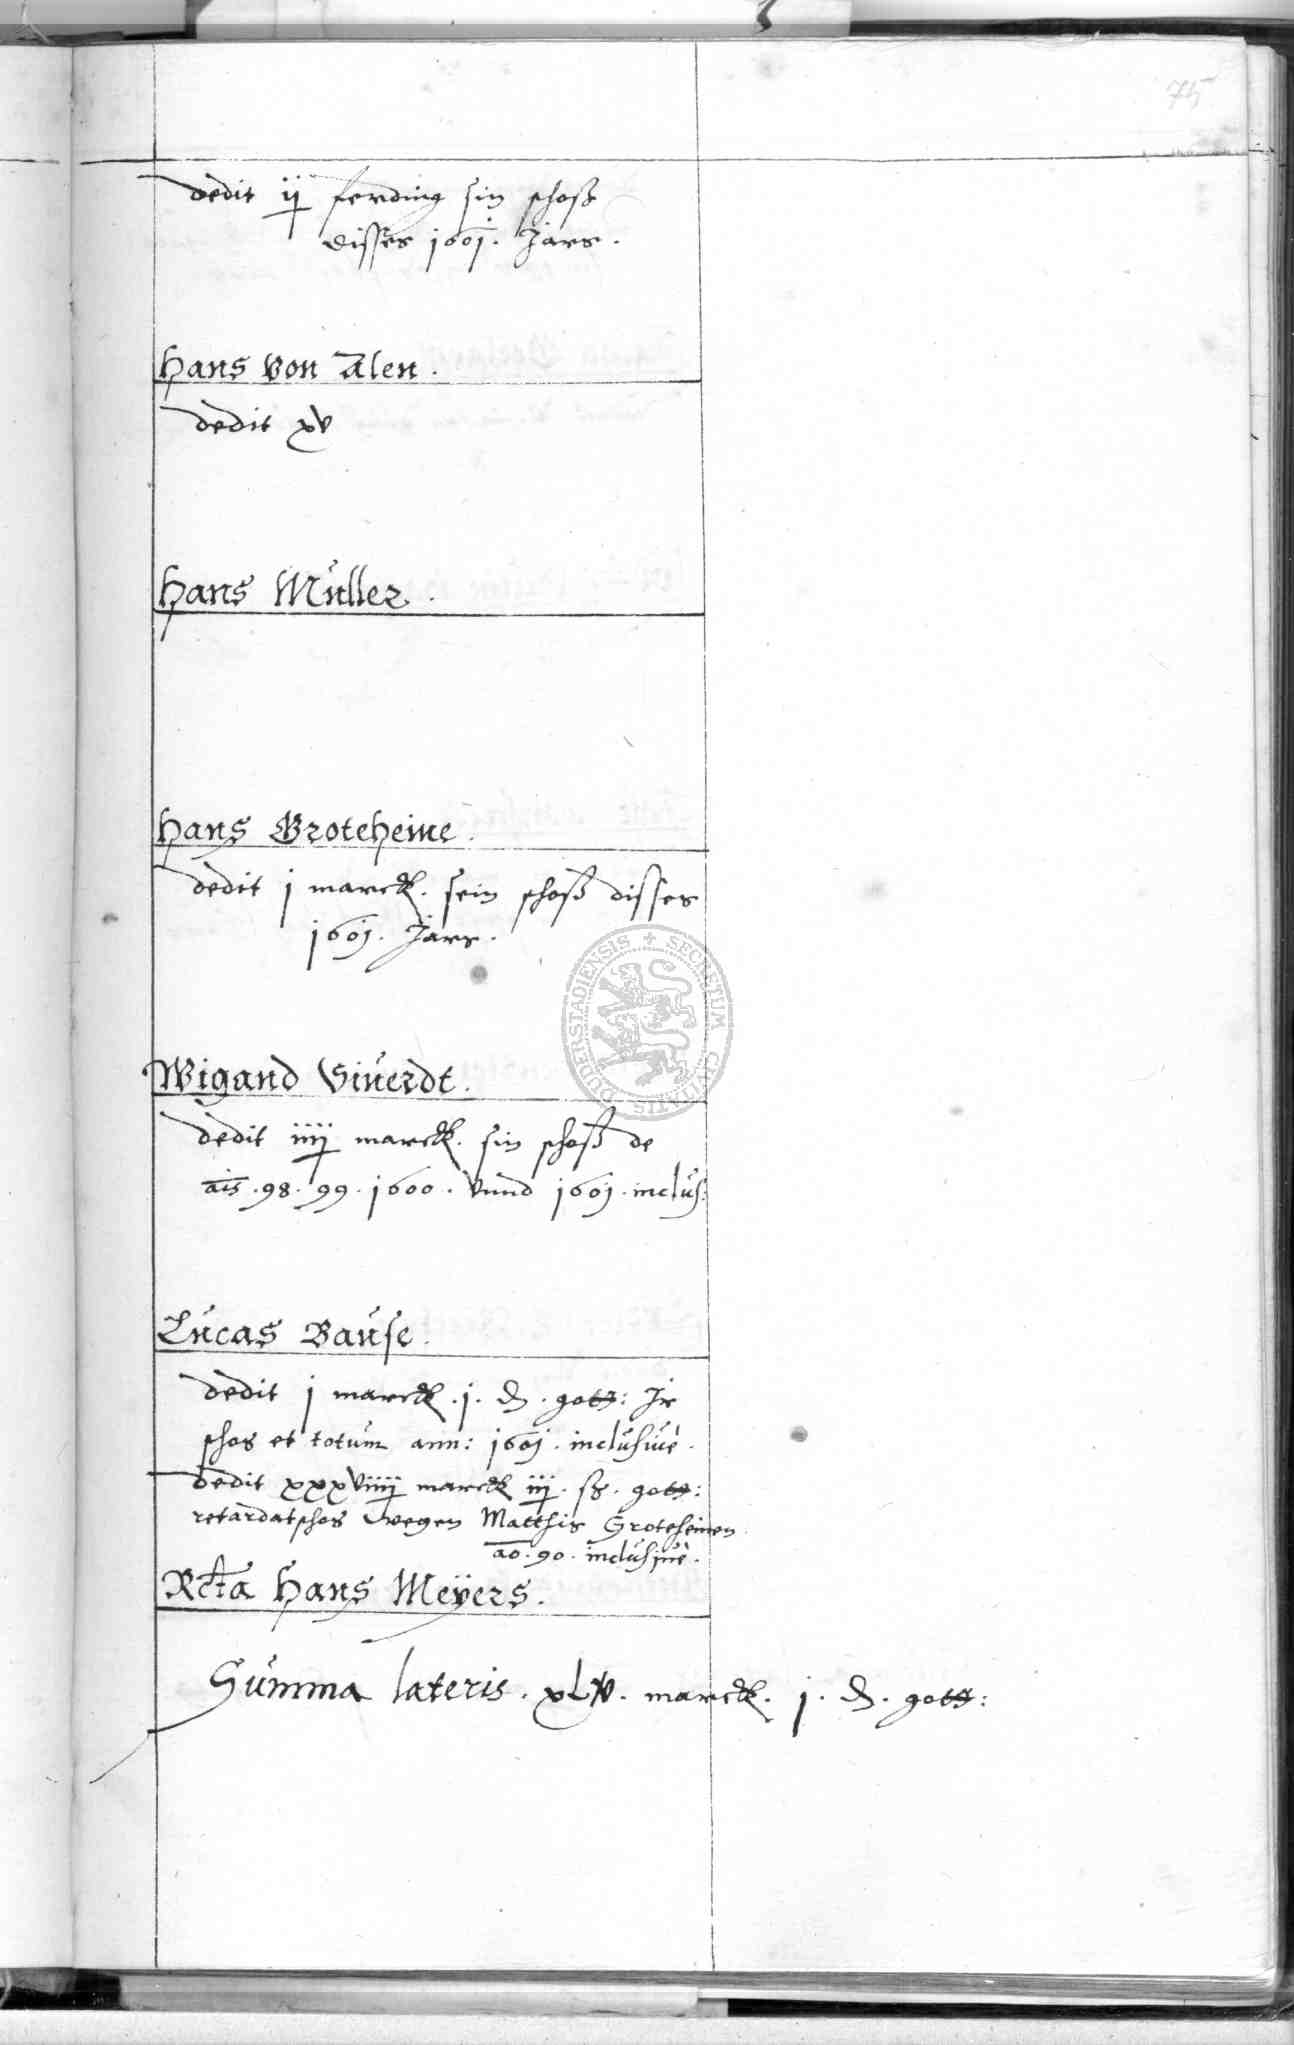 75
dedit ij ferding sin schoß
disses 1601. Jars.
Hans von Alen.
dedit xv
Hans Müller.
Hans Groteheine.
dedit j marck. sein schoß disses
1601. Jars.
Wigand Siuerdt.
dedit iiij marck. sin schoß de
ais. 98. 99. 1600. vnnd 1601. inclus:
Lucas Bause.
dedit j marck. j. d. gott: Jr
schos et totum ann: 1601. inclusiue.
dedit xxxviiij marck iij. ß. gott:
retardatschos wegen Matthis Groteheinen
ao. 90. inclusiue.
Rcta Hans Meÿers.
Summa lateris. xlv. marck. j. d. gott:
SECRETUM CIVITATIS DUDERSTADIENSIS